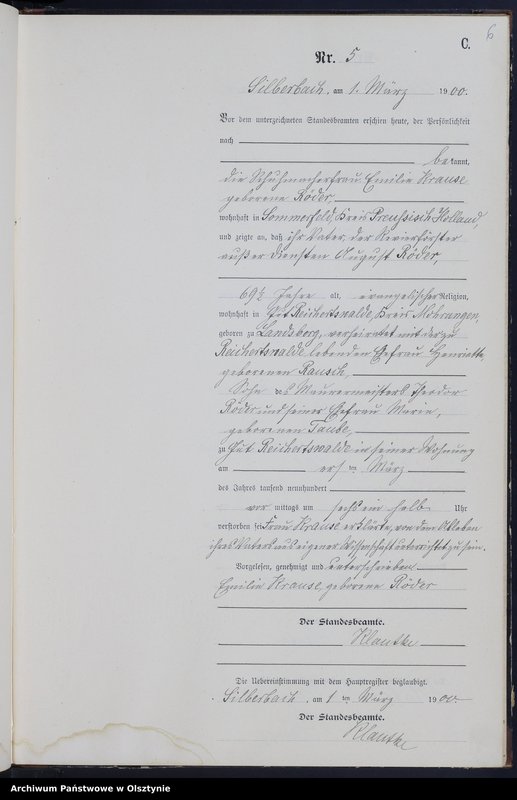 6
C.
Nr. 5
Silberbach, am 1. März 1900.
Vor dem unterzeichneten Standesbeamten erschien heute, der Persönlichkeit
nach
be kannt,
die Schuhmacherfrau Emilie Krause
geborene Röder,
wohnhaft in Sommerfeld, Kreis Preußisch Holland,
und zeigte an, daß ihr Vater, der Revierförster
außer Diensten August Röder,
69½ Jahre alt, evangelischer Religion,
wohnhaft in Gut Reichertswalde, Kreis Mohrungen,
geboren zu Landsberg, verheiratet mit der zu
Reichertswalde lebenden Ehefrau Henriette,
geborenen Rausch,
Sohn des Maurermeisters Theodor
Röder und seiner Ehefrau Marie,
geborenen Taube,
zu Gut Reichertswalde in seiner Wohnung
am ersten März
des Jahres tausend neunhundert
vor mittags um sechs ein halb Uhr
verstorben sei Frau Krause erklärte, von dem Ableben
ihres Vaters aus eigener Wissenschaft unterrichtet zu sein.
Vorgelesen, genehmigt und unterschrieben
Emilie Krause, geborene Röder
Der Standesbeamte.
Klautke
Die Uebereinstimmung mit dem Hauptregister beglaubigt.
Silberbach, am 1 ten März 1900
Der Standesbeamte.
Klautke
Archiwum Państwowe w Olsztynie